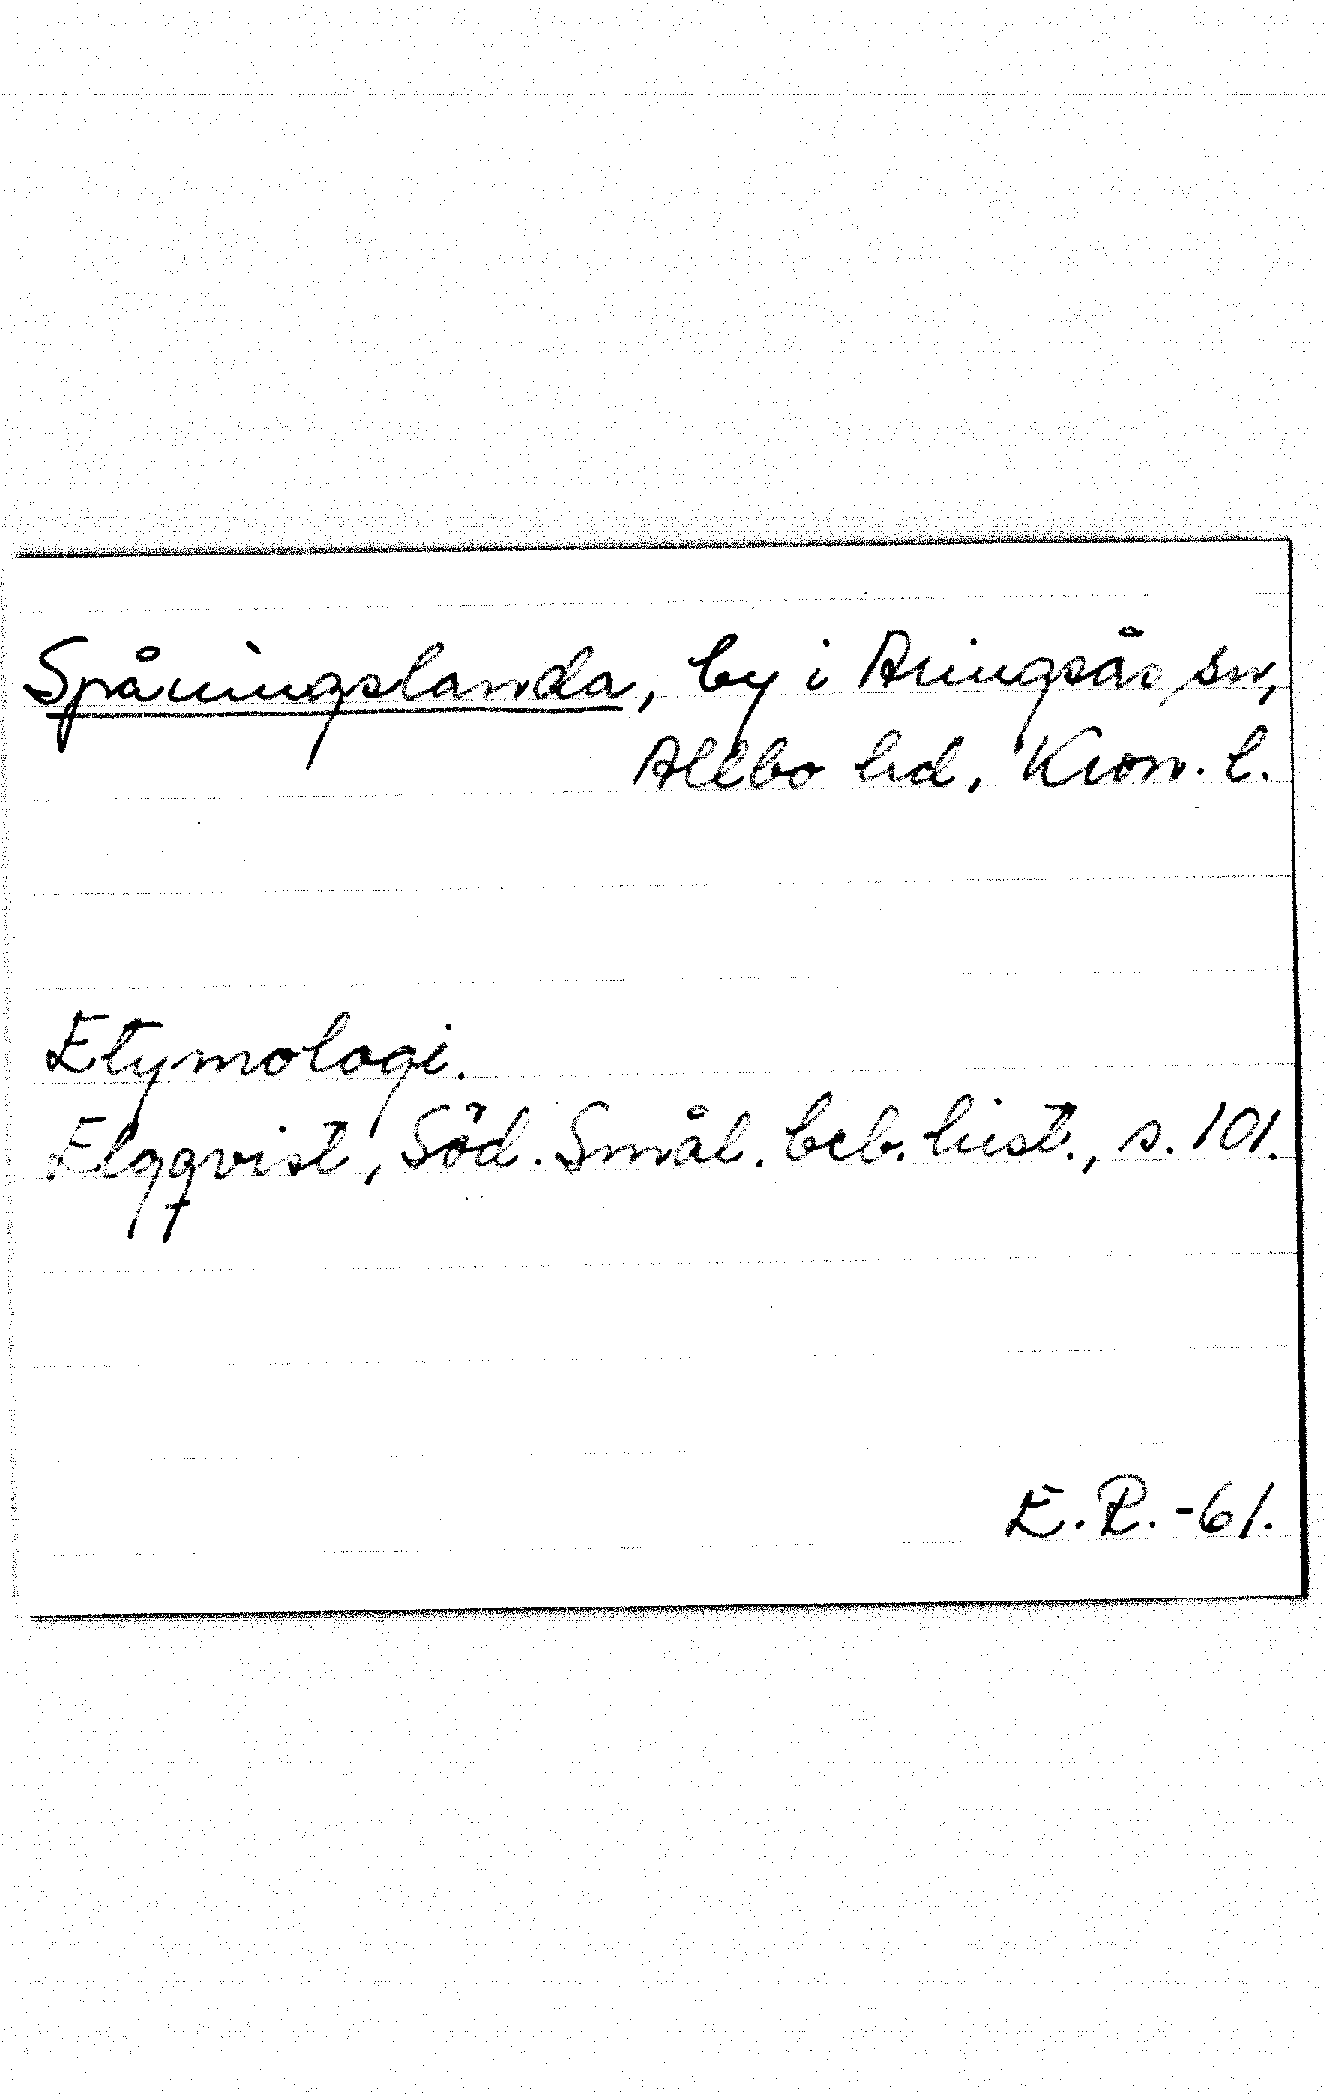 Spåningslanda, by i Aringsås sn,
Allbo hd, Kron. l.
Etymologi.
Elgqvist, Söd. Smål. beb. hist., s. 101.
E. P. -61.